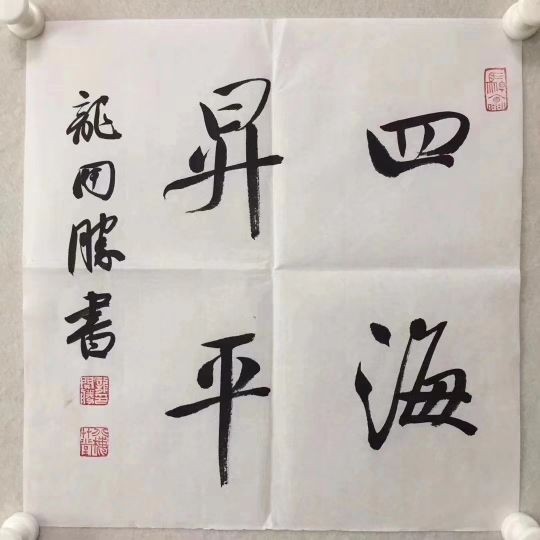 四海
昇平
龍開勝書